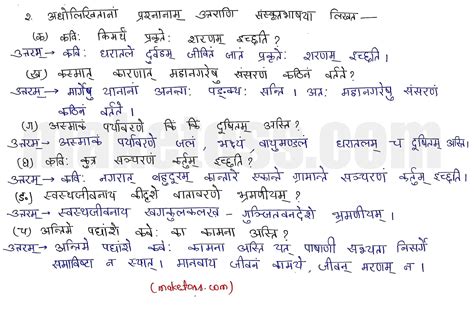 2. अधोलिखितानां प्रश्नानाम् उत्तराणि संस्कृतभाषया लिखत —
(क) कविः किमर्थं प्रकृतेः शरणम् इच्छति ?
उत्तरम् → कविः धरातले दुर्वहम् जीवितं जातं प्रकृतेः शरणम् इच्छति ।
(ख) कस्मात् कारणात् महानगरेषु संसरणं कठिनं वर्तते ?
उत्तरम् → मार्गेषु यानानां अनन्ताः पङ्क्तयः सन्ति । अतः महानगरेषु संसरणं
कठिनं वर्तते ।
(ग) अस्माकं पर्यावरणे किं किं दूषितम् अस्ति ?
उत्तरम् → अस्माकं पर्यावरणे जलं, भक्ष्यं, वायुमण्डलं धरातलम् च दूषितम् अस्ति ।
(घ) कविः कुत्र सञ्चरणं कर्तुम् इच्छति ?
उत्तरम् → कविः नगरात् बहुदूरम् कान्तारे एकान्ते ग्रामान्ते सञ्चरणं कर्तुम् इच्छति ।
(ङ) स्वस्थजीवनाय कीदृशे वातावरणे भ्रमणीयम् ?
उत्तरम् → स्वस्थजीवनाय खगकुलकलरव - गुञ्जितवनदेशे भ्रमणीयम् ।
(च) अन्तिमे पद्यांशे कवेः का कामना अस्ति ?
उत्तरम् → अन्तिमे पद्यांशे कवेः कामना अस्ति यत् पाषाणी सभ्यता निसर्गे
समाविष्टा न स्यात् । मानवाय जीवनं कामये, जीवन् मरणम् न ।
(maketoss.com)